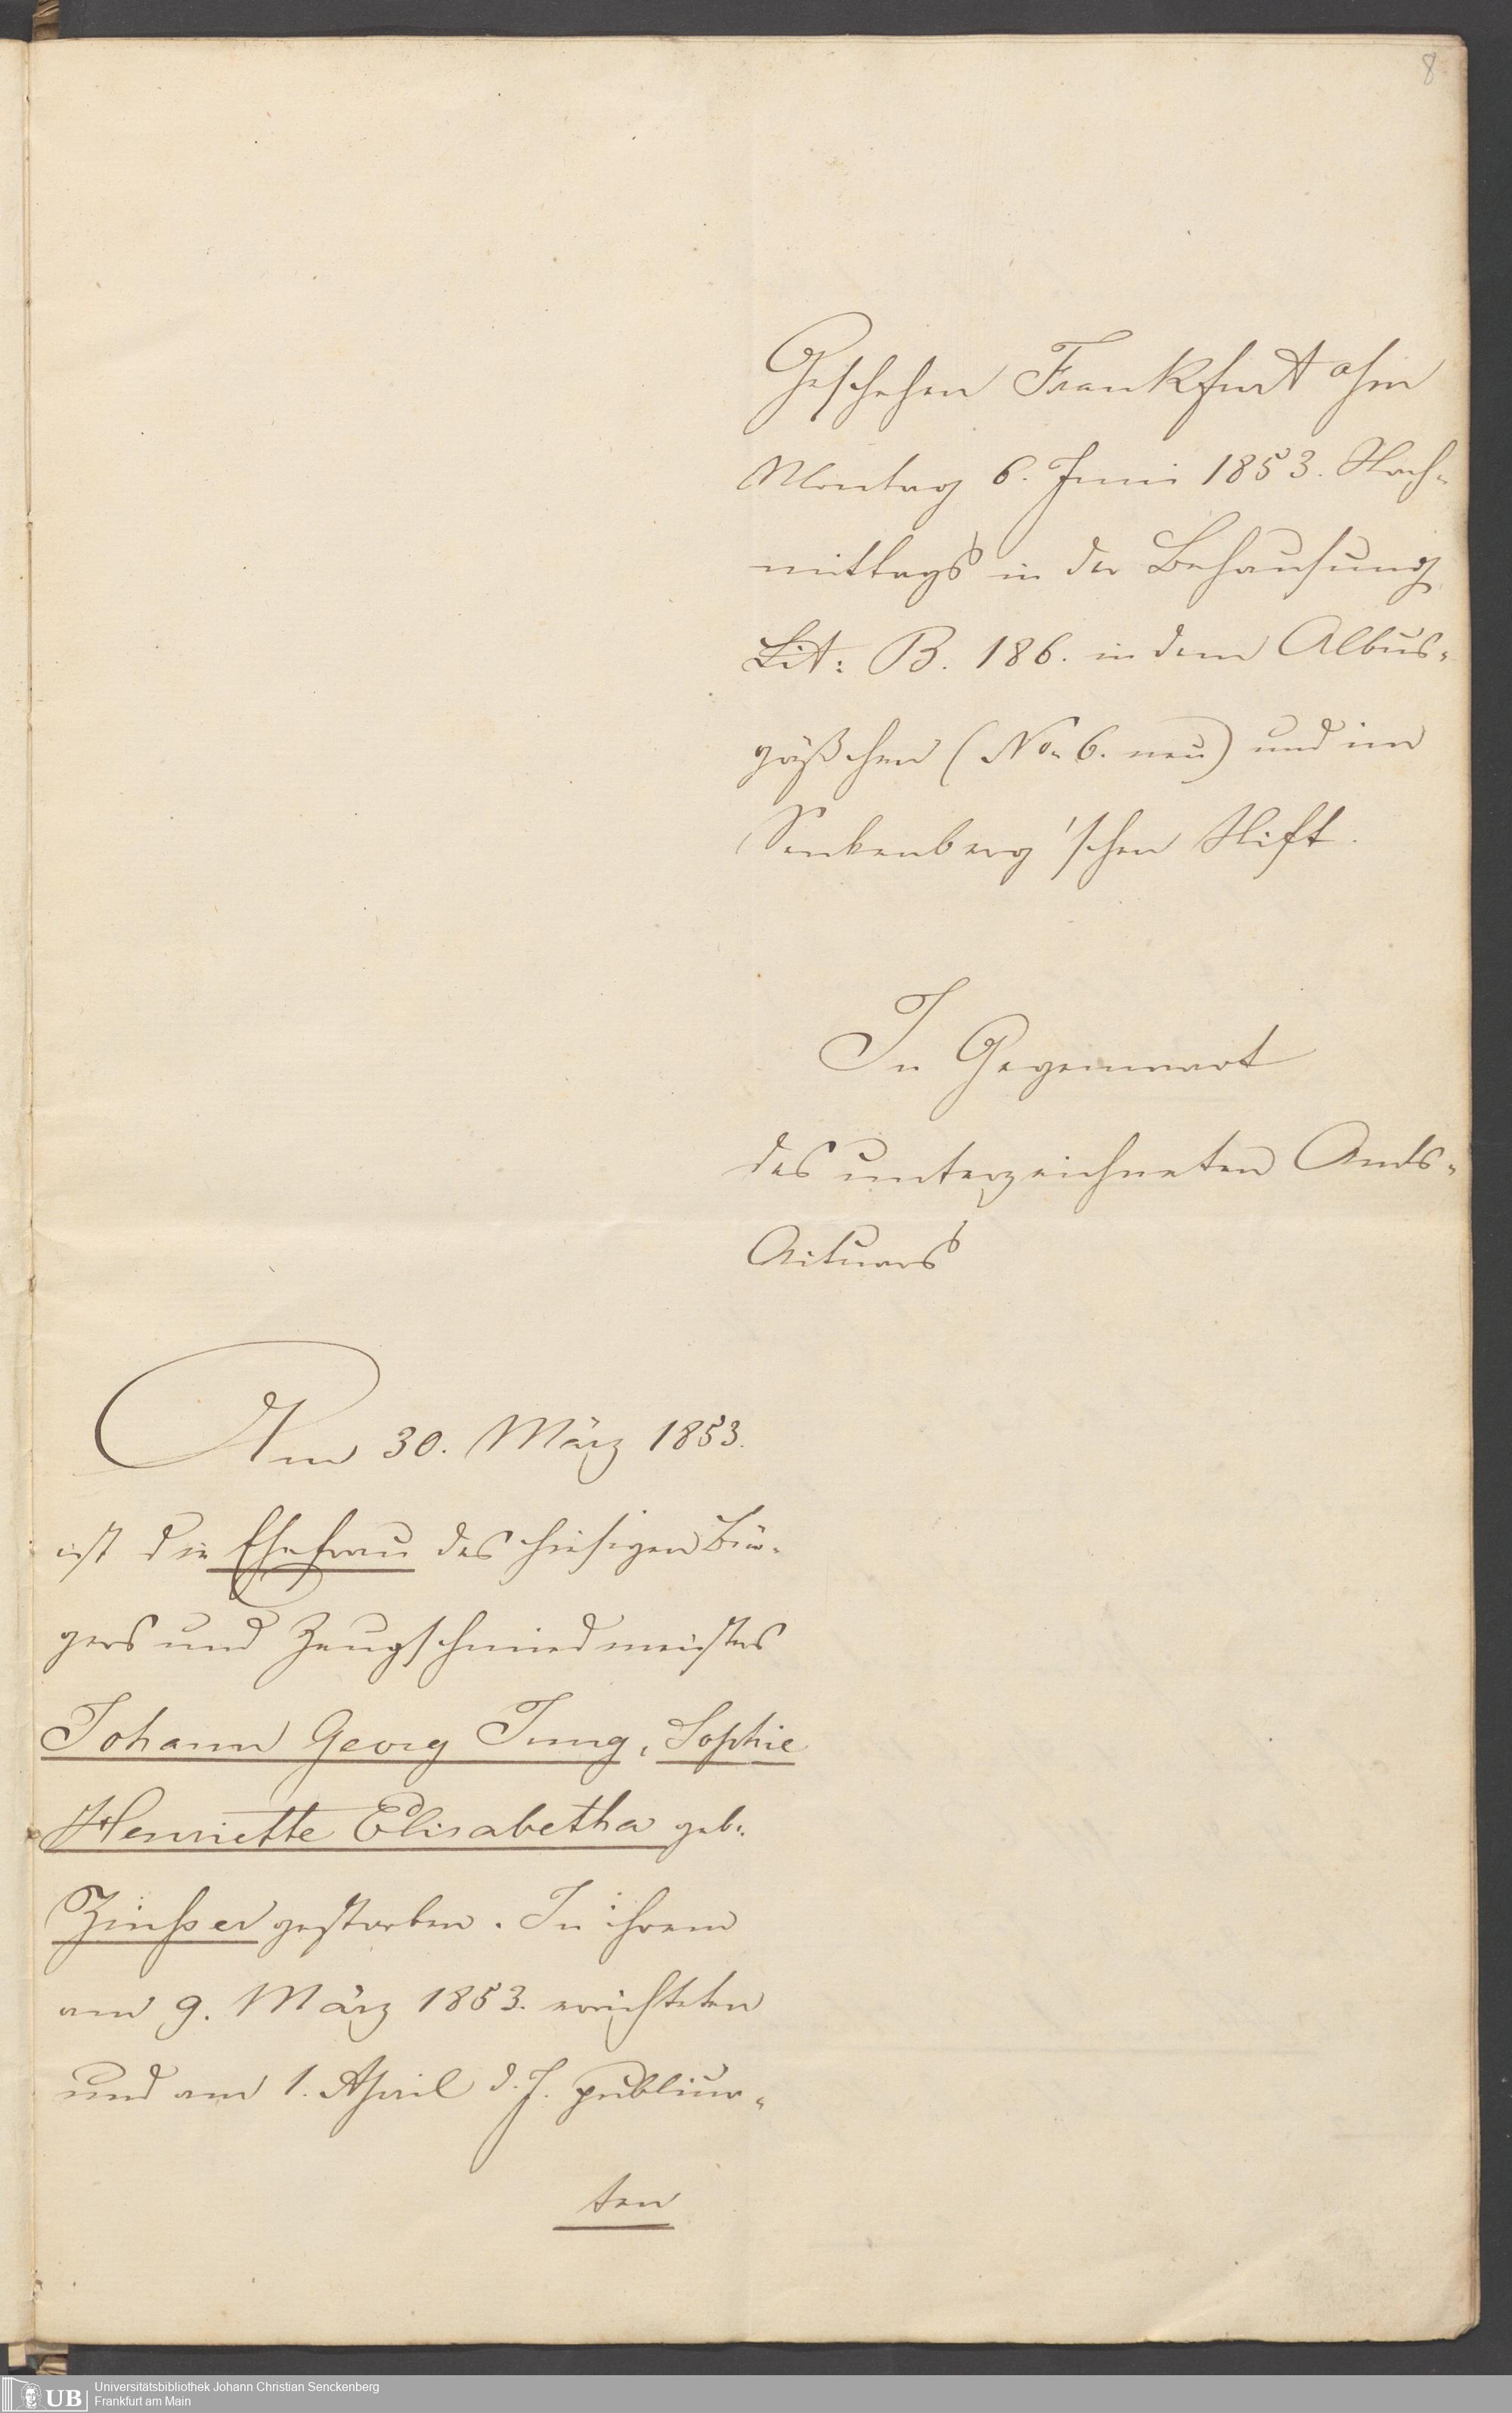 8
Geschehen Frankfurt a/m
Montag 6. Juni 1853. Nach-
mittags in der Behausung
Lit: B. 186. in dem Albus-
gäßchen (No. 6. neu) und im
Senkenberg'schen Stift.
In Gegenwart
des unterzeichneten Amts-
Actuars
Am 30. März 1853.
ist die Ehefrau des hiesigen Bür-
gers und Zeugschmiedmeisters
Johann Georg Jung, Sophie
Henriette Elisabetha geb.
Zinßer gestorben. In ihrem
am 9. März 1853. errichteten
und am 1. April d. J. publicir-
ten
UB
Universitätsbibliothek Johann Christian Senckenberg
Frankfurt am Main